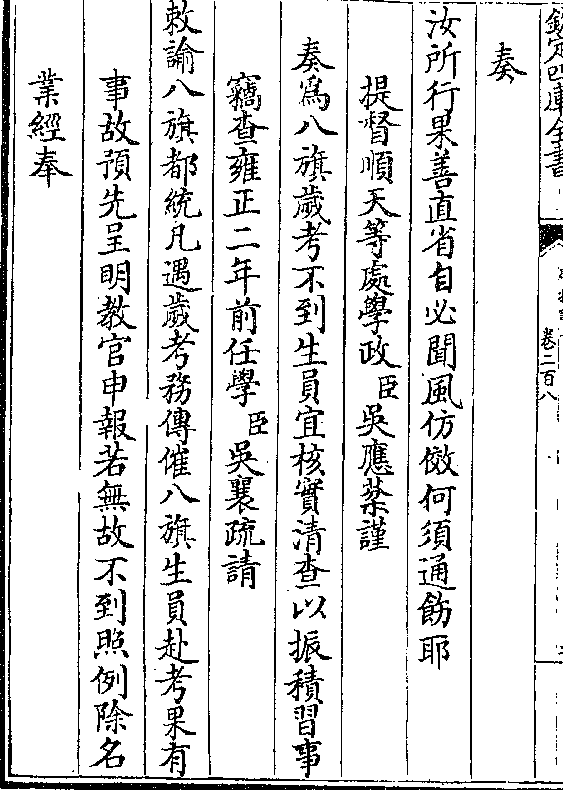 欽定四庫全書
卷二百八
奏
汝所行果善直省自必聞風仿傚何須通飭耶
提督順天等處學政臣吳應棻謹
奏為八旗歲考不到生員宜核實清查以振積習事
竊查雍正二年前任學臣吳襄疏請
敕諭八旗都統凡遇歲考務傳催八旗生員赴考果有
事故預先呈明教官申報若無故不到照例除名
業經奉